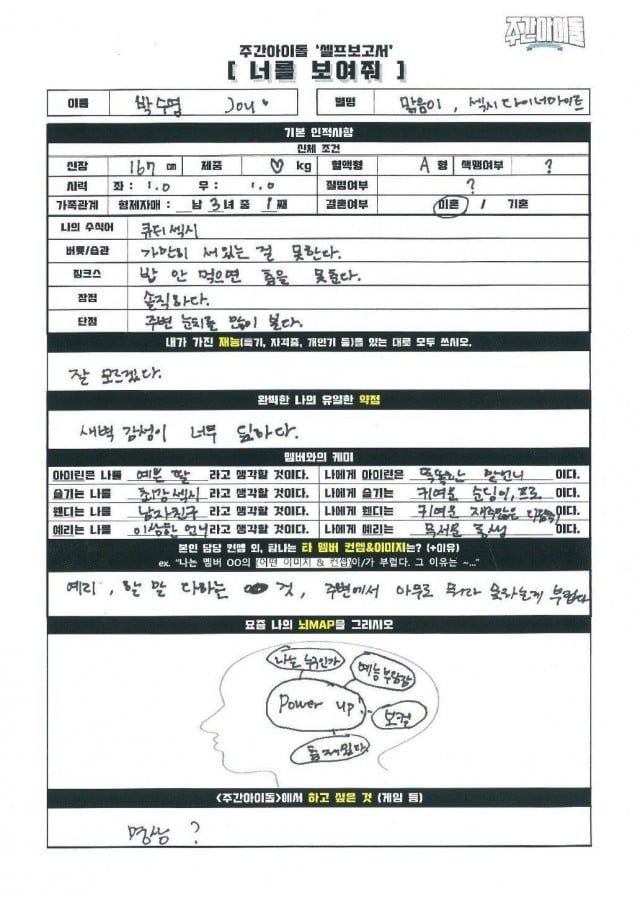 주간아이돌
주간아이돌 '셀프보고서'
[ 너를 보여줘 ]
이름 박수영 Joy♥ 별명 맑음이, 섹시다이너마이트
기본 인적사항
신체 조건
신장 167 cm 체중 ♡ kg 혈액형 A 형 색맹여부 ?
시력 좌 : 1.0 우 : 1.0 질병여부 ?
가족관계 형제자매 : 남 3 녀 중 1 째 결혼여부 미혼 / 기혼
나의 수식어 큐티섹시
버릇/습관 가만히 서있는 걸 못한다.
징크스 밥 안 먹으면 춤을 못춘다.
장점 솔직하다.
단점 주변 눈치를 많이 본다.
내가 가진 재능(특기, 자격증, 개인기 등)을 있는 대로 모두 쓰시오.
잘 모르겠다.
완벽한 나의 유일한 약점
새벽 감성이 너무 딥하다.
멤버와의 케미
아이린은 나를 예쁜 딸 라고 생각할 것이다. 나에게 아이린은 똑똑한 맏언니 이다.
슬기는 나를 최강섹시 라고 생각할 것이다. 나에게 슬기는 귀여운 순딩이, 프로 이다.
웬디는 나를 남자친구 라고 생각할 것이다. 나에게 웬디는 귀여운 재주많은 다람쥐 이다.
예리는 나를 이상한 언니 라고 생각할 것이다. 나에게 예리는 무서운 동생 이다.
본인 담당 컨셉 외, 탐나는 타 멤버 컨셉&이미지는? (+이유)
ex. "나는 멤버 OO의 [어떤 이미지 & 컨셉]이/가 부럽다. 그 이유는 ~..."
예리, 할 말 다하는 것, 주변에서 아무도 뭐라 못하는게 부럽다
요즘 나의 뇌MAP을 그리시오
나는 누구인가
예능 부담감
Power up!
보컬
춤 재밌다.
<주간아이돌>에서 하고 싶은 것 (게임 등)
명상 ?